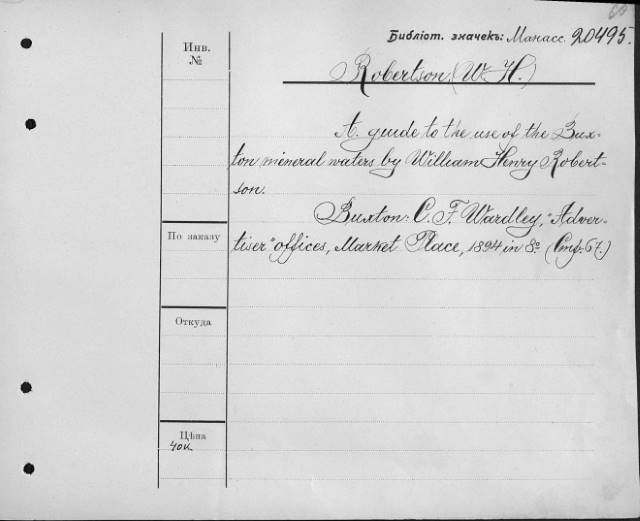 Библіот. значекъ: Манасс. 20495.
Инв.
№
Robertson, (W. H.)
A guide to the use of the Bux-
ton mineral waters by William Henry Robert-
son.
Buxton: C. F. Wardley, "Adver-
По заказу
tiser" offices, Market Place, 1894, in 8º. (Стр. 67.)
Откуда
Цѣна
40 к